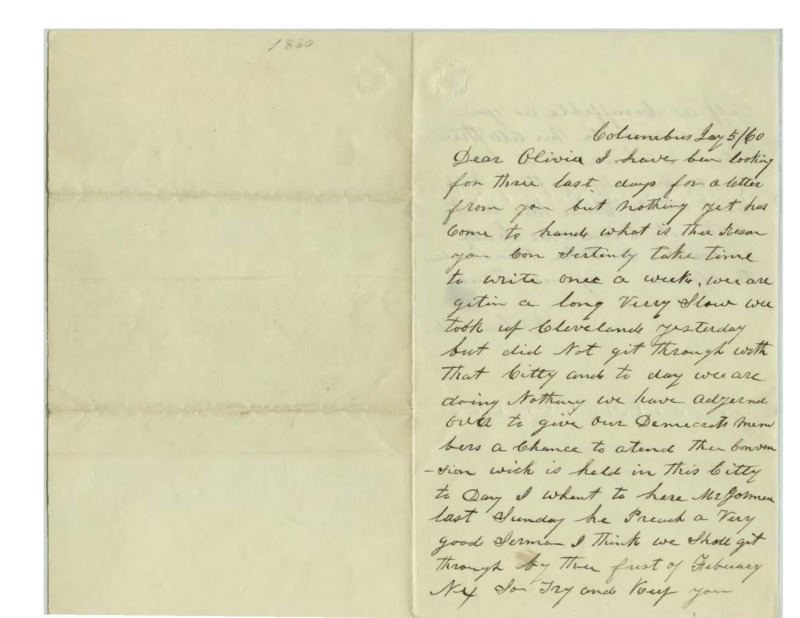 1860
Columbus Jay 5/60
Dear Olivia I have ben looking
for three last days for a letter
from you but nothing yet has
Come to hand what is thee Reson
you Con Sertinly take time
to write once a week, wee are
gitin a long Verry Slow wee
took up Cleveland yesterday
but did Not git through with
that Citty and to day wee are
doing Nothing we have adjernd
over to give our Democrats mem
bers a Chance to atend thee Conven
-sion wich is held in this Citty
to Day I whent to here Mr
last Sunday he Preach a Very
good Serman I think we Shall git
through by thee first of Febuary
Nex So Try and Keep you